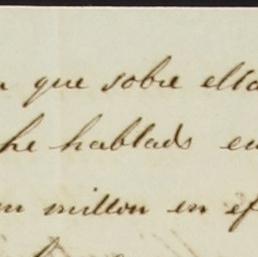 que sobre ella
he hablado en
un millon en ef